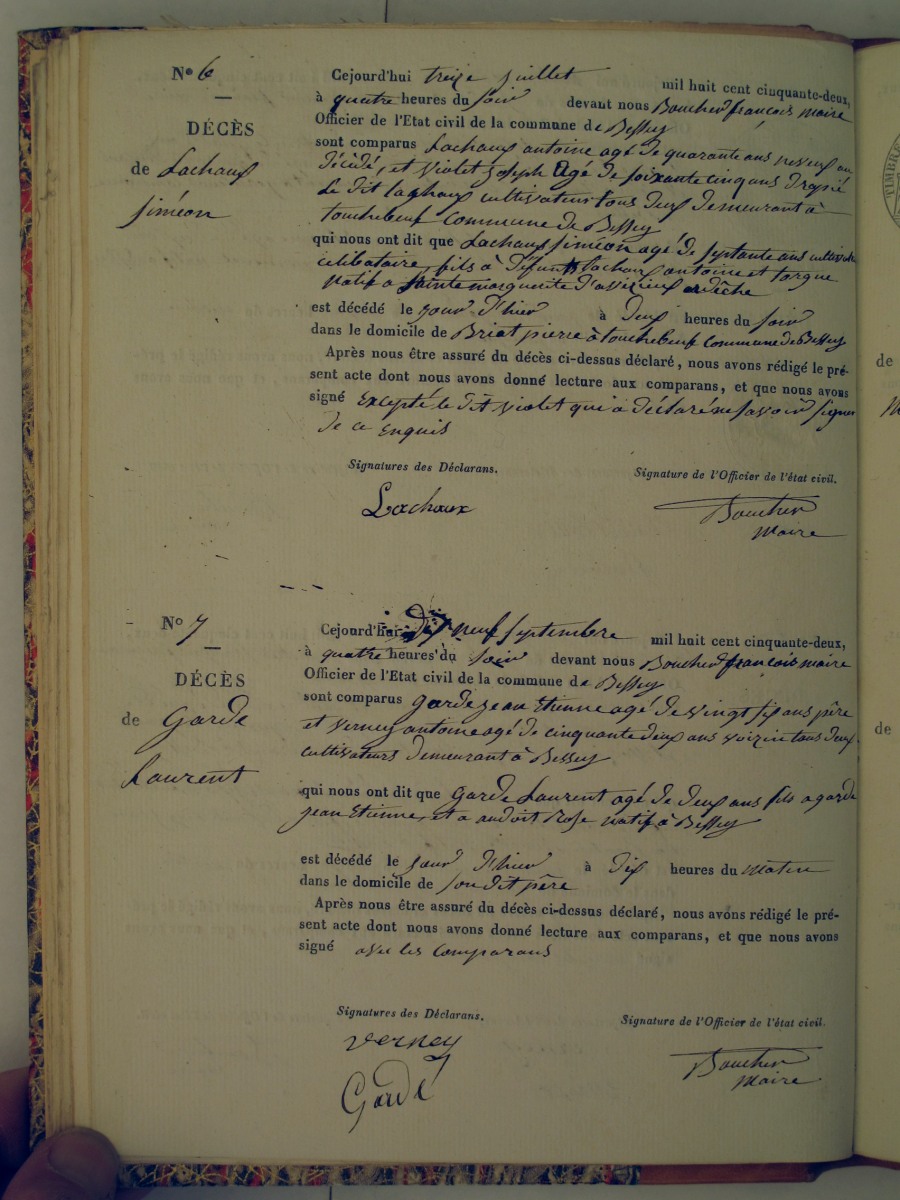 N° 6
DÉCÈS
de Lachaux
siméon
Cejourd'hui treize juillet mil huit cent cinquante-deux,
à quatre heures du soir devant nous Boucher françois maire
Officier de l'Etat civil de la commune de Bessey
sont comparus Lachaux antoine agé de quarante ans neveux au
décédé, et violet joseph agé de soixante cinq ans
Le dit lachaux cultivateurs tous deux demeurant à
touchebeuf commune de Bessey
qui nous ont dit que Lachaux siméon agé de septante ans
célibataire, fils à défunts lachaux antoine et torgue
natif a sainte marguerite ardêche
est décédé le jour d'hier à deux heures du soir
dans le domicile de Briat pierre à touchebeuf commune de Bessey
Après nous être assuré du décès ci-dessus déclaré, nous avons rédigé le pré-
sent acte dont nous avons donné lecture aux comparans, et que nous avons
signé excepté le dit violet qui a déclaré ne savoir signer
de ce enquis
Signatures des Déclarans.
Signature de l'Officier de l'état civil.
Lachaux
Boucher
maire
N° 7
DÉCÈS
de Garde
Laurent
Cejourd'hui dix neuf septembre mil huit cent cinquante-deux,
à quatre heures du soir devant nous Boucher françois maire
Officier de l'Etat civil de la commune de Bessey
sont comparus Garde jean Etienne agé de vingt six ans père
et verney antoine agé de cinquante deux ans voizin tous deux
cultivateurs demeurant à Bessey
qui nous ont dit que Garde Laurent agé de deux ans fils a garde
jean Etienne, et a audoit Rose natif à Bessey
est décédé le jour d'hier à dix heures du matin
dans le domicile de son dit père
Après nous être assuré du décès ci-dessus déclaré, nous avons rédigé le pré-
sent acte dont nous avons donné lecture aux comparans, et que nous avons
signé avec les comparans
Signatures des Déclarans.
Signature de l'Officier de l'état civil.
verney
Garde
Boucher
maire
TIMBRE
de
de